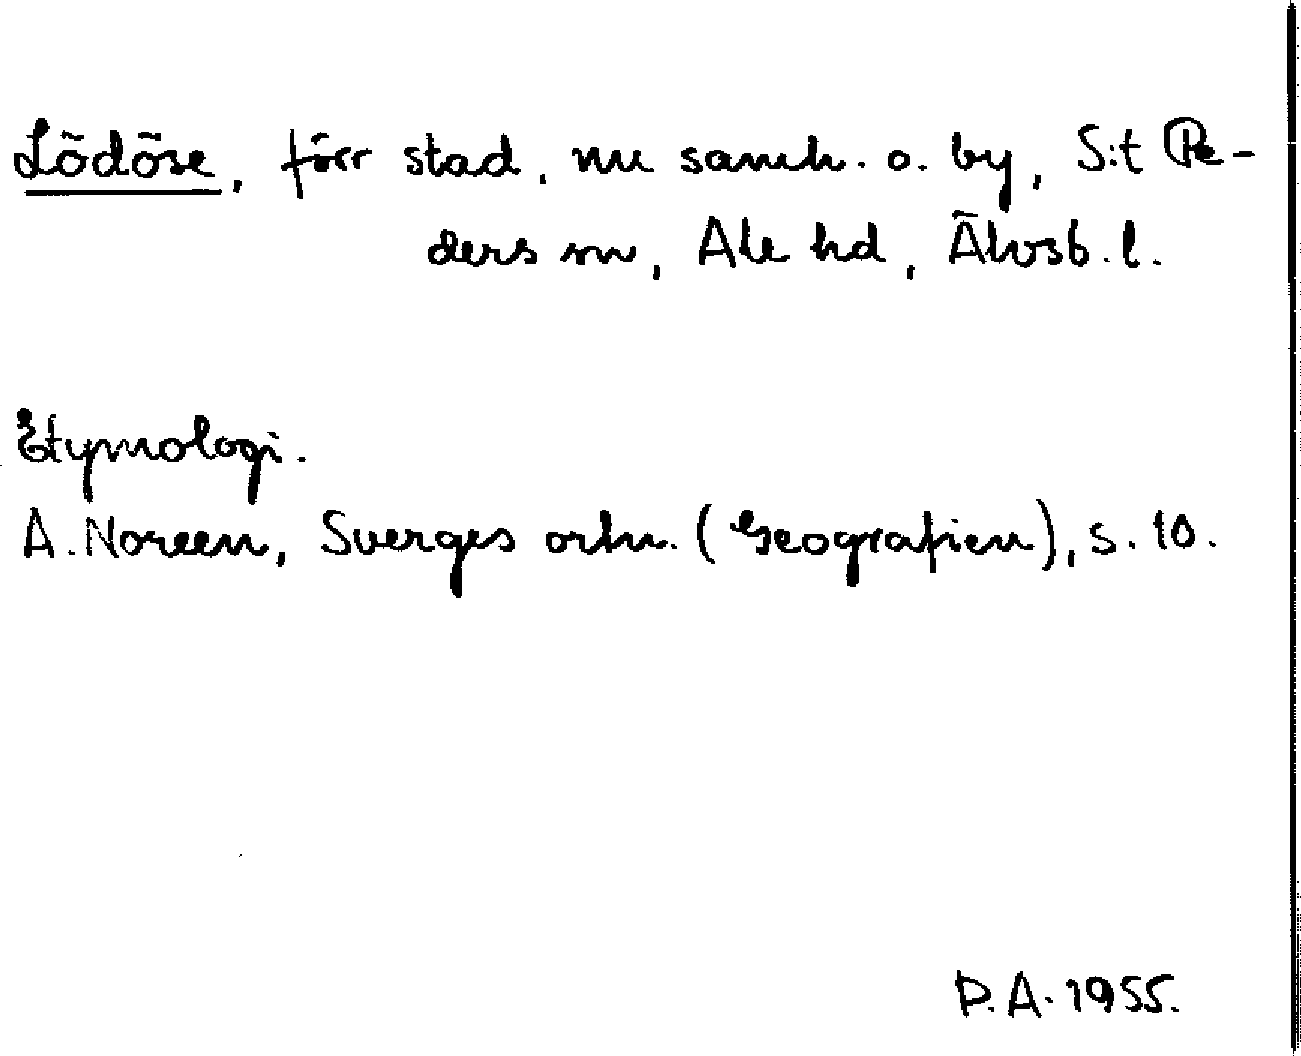 Lödöse, förr stad, nu samh. o. by, S:t Pe-
ders sn, Ale hd, Älvsb. l.
Etymologi.
A. Noreen, Sverges ortn. (Geografien), s. 10.
P.A. 1955.